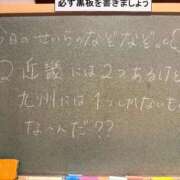 必ず黒板を書きましょう
今日のせいらのなぞなぞ。
②近畿には2つあるけど
九州には1つしかないもの
なーんだ??